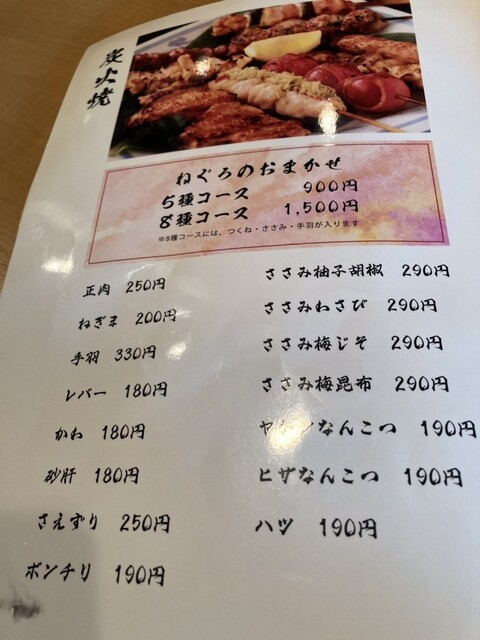 炭火焼
ねぐろのおまかせ
5種コース 900円
8種コース 1,500円
※8種コースには、つくね・ささみ・手羽が入ります
正肉 250円
ねぎま 200円
手羽 330円
レバー 180円
かわ 180円
砂肝 180円
さえずり 250円
ボンチリ 190円
ささみ柚子胡椒 290円
ささみわさび 290円
ささみ梅じそ 290円
ささみ梅昆布 290円
ヤゲンなんこつ 190円
ヒザなんこつ 190円
ハツ 190円